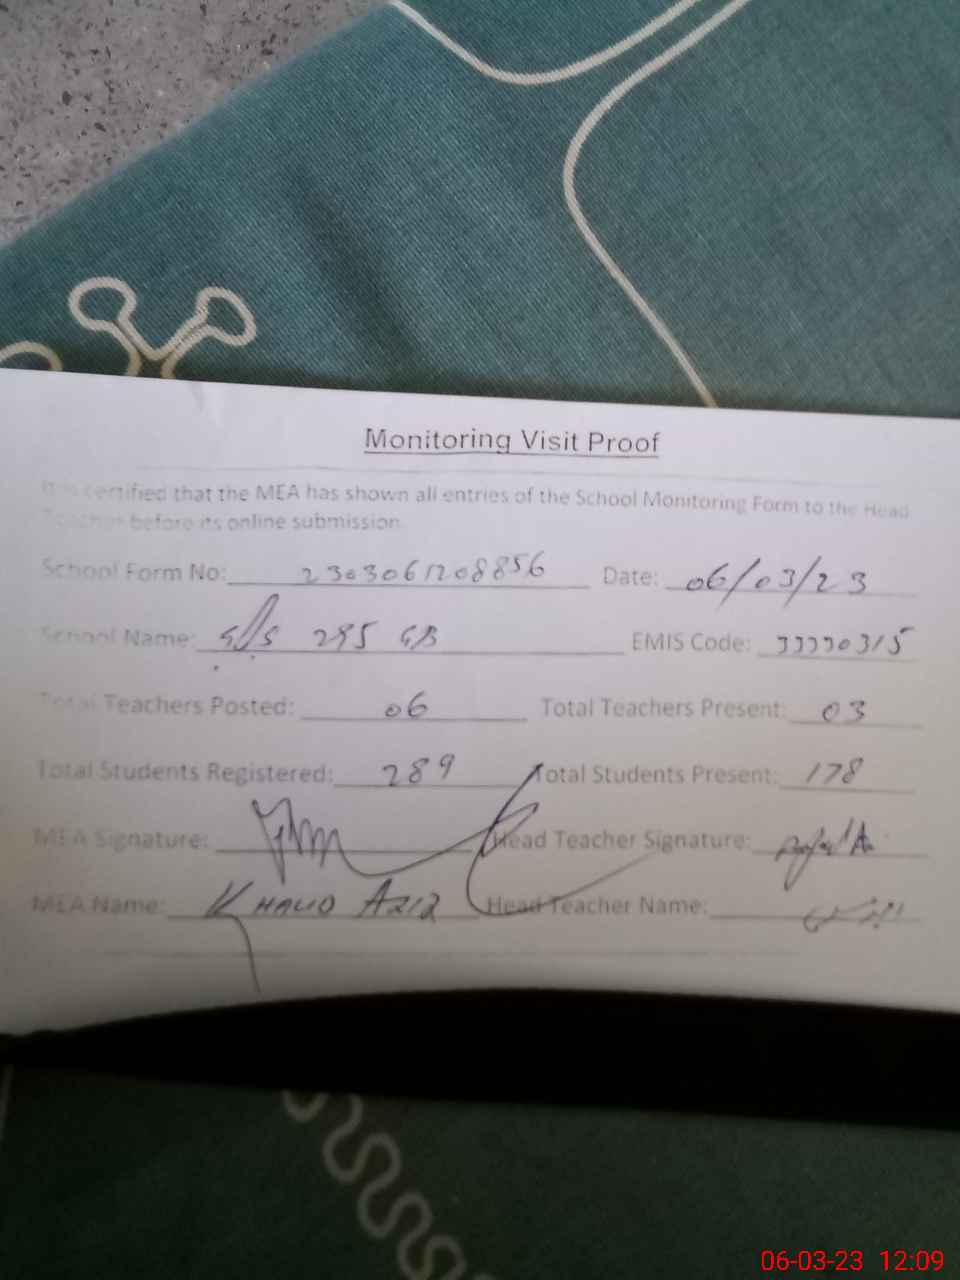 Monitoring Visit Proof
It is certified that the MEA has shown all entries of the School Monitoring Form to the Head
Teacher before its online submission.
School Form No: 2303061208856 Date: 06/03/23
School Name: G/S 295 GB EMIS Code: 33330315
Total Teachers Posted: 06 Total Teachers Present: 03
Total Students Registered: 289 Total Students Present: 178
MEA Signature: Head Teacher Signature:
MEA Name: KHALID AZIZ Head Teacher Name:
06-03-23 12:09